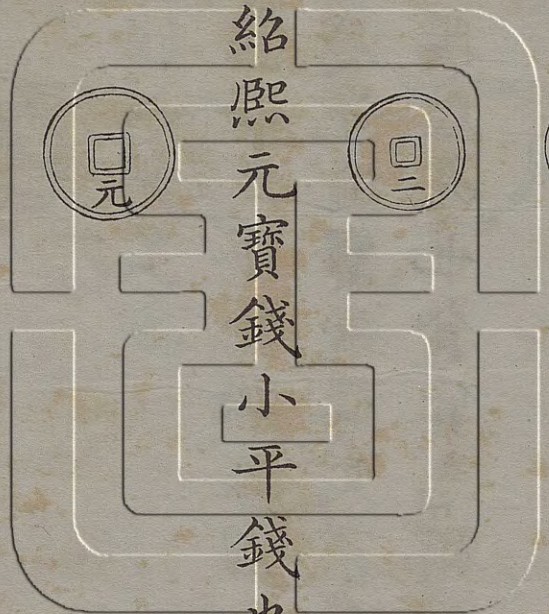 二
紹熙元寶錢小平錢
元